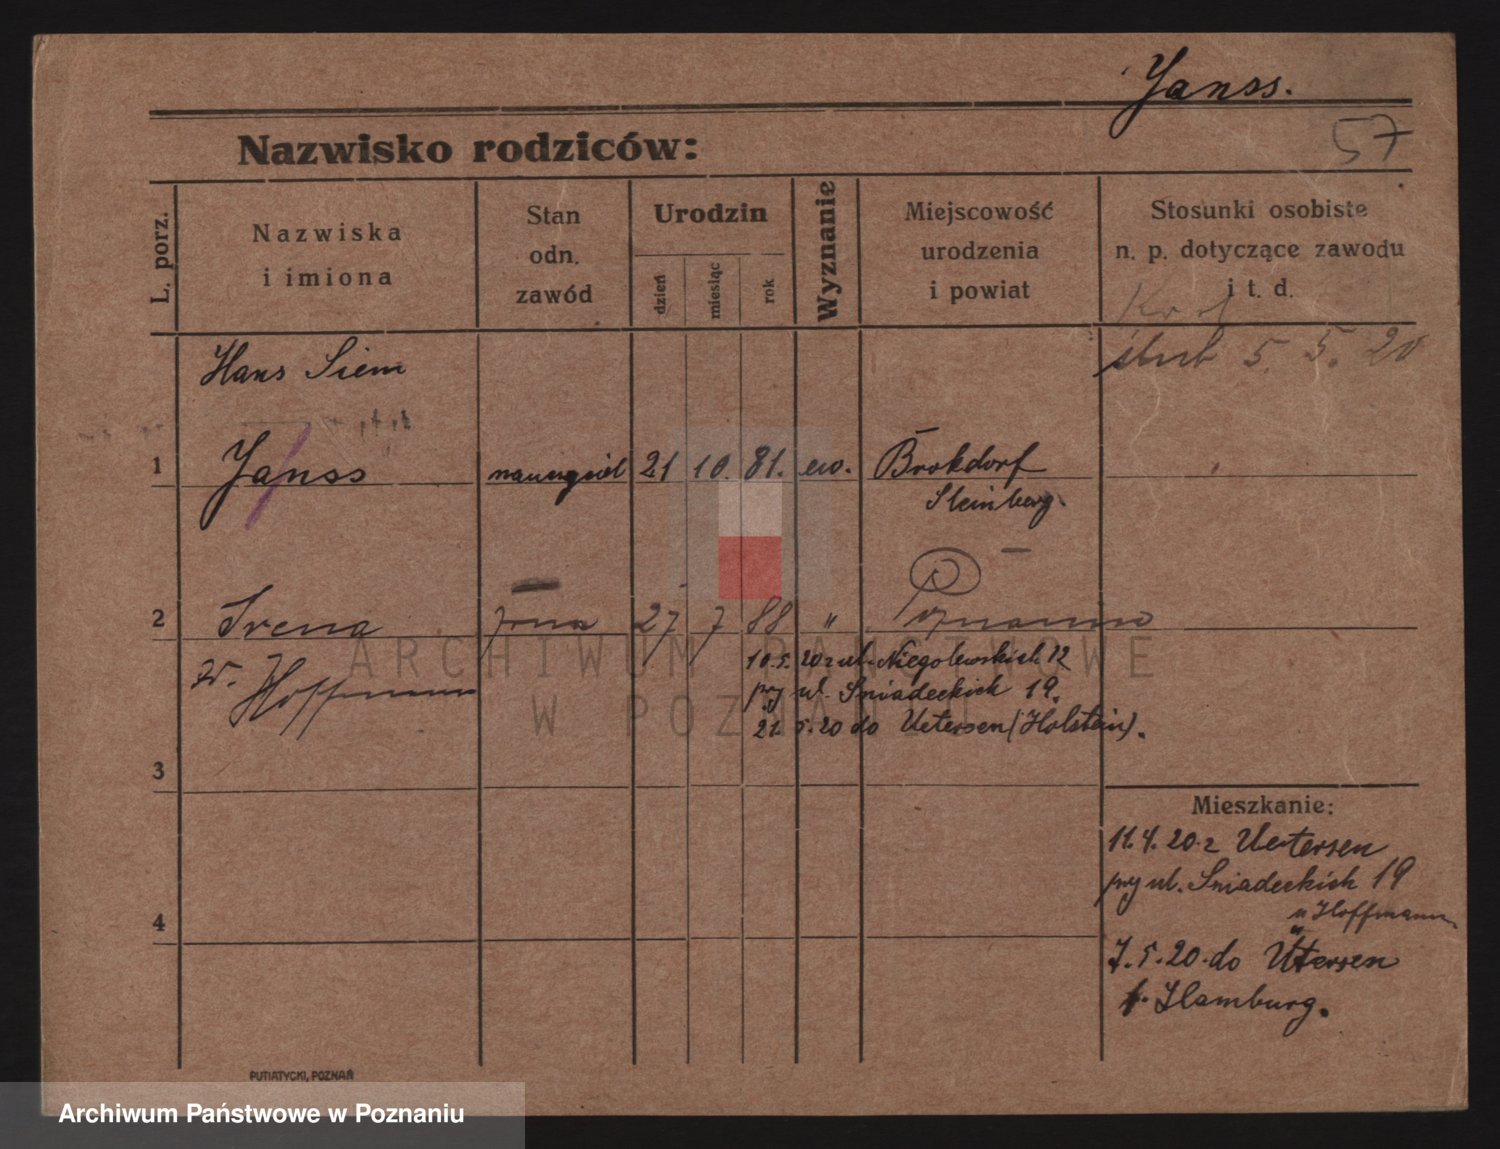 Janss.
57
Nazwisko rodziców:
L. porz.
Nazwiska
i imiona
Stan
odn.
zawód
Urodzin
dzień
miesiąc
rok
Wyznanie
Miejscowość
urodzenia
i powiat
Stosunki osobiste
n. p. dotyczące zawodu
i t. d.
ślub 5. 5. 20
Hans Siem
1 Janss nauczyciel 21 10. 81. ew. Brokdorf
Steinberg.
2 Irena żona 27 7 88 " Poznan
zd. Hoffmann
10.5.20 z ul. Niegolewskich 12
przy ul. Śniadeckich 19.
21. 5.20 do Uetersen (Holstein).
3
Mieszkanie:
11.4.20 z Uetersen
przy ul. Śniadeckich 19
u Hoffmann
4
7.5.20 do Ütersen
b. Hamburg.
PUTIATYCKI, POZNAŃ
ARCHIWUM PAŃSTWOWE
W POZNANIU
Archiwum Państwowe w Poznaniu